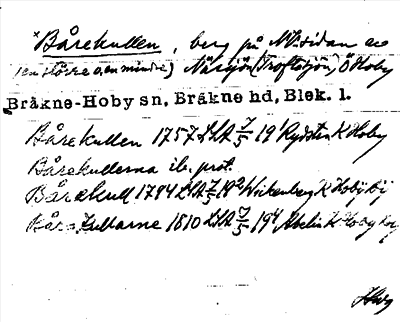 *Bårekullen, berg på NVsidan av
(en större o. en mindre) Närsjön (Troftesjön), Ö Hoby
Bräkne-Hoby sn, Bräkne hd, Blek. l.
Bårekullen 1757 LSA 7/5 19¹ Rydstén K Hoby
Bårekullerna ib. prot.
Bårekull 1794 LSA 7/5 19² Wirkenberg K Hoby by
Båreskullarne 1810 LSA 7/5 19⁴ Abelin K Hoby